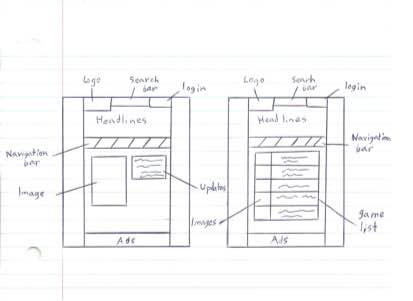 Logo
Search bar
login
Headlines
Navigation bar
Image
Updates
Ads
Logo
Searh bar
login
Headlines
Navigation bar
Images
game list
Ads